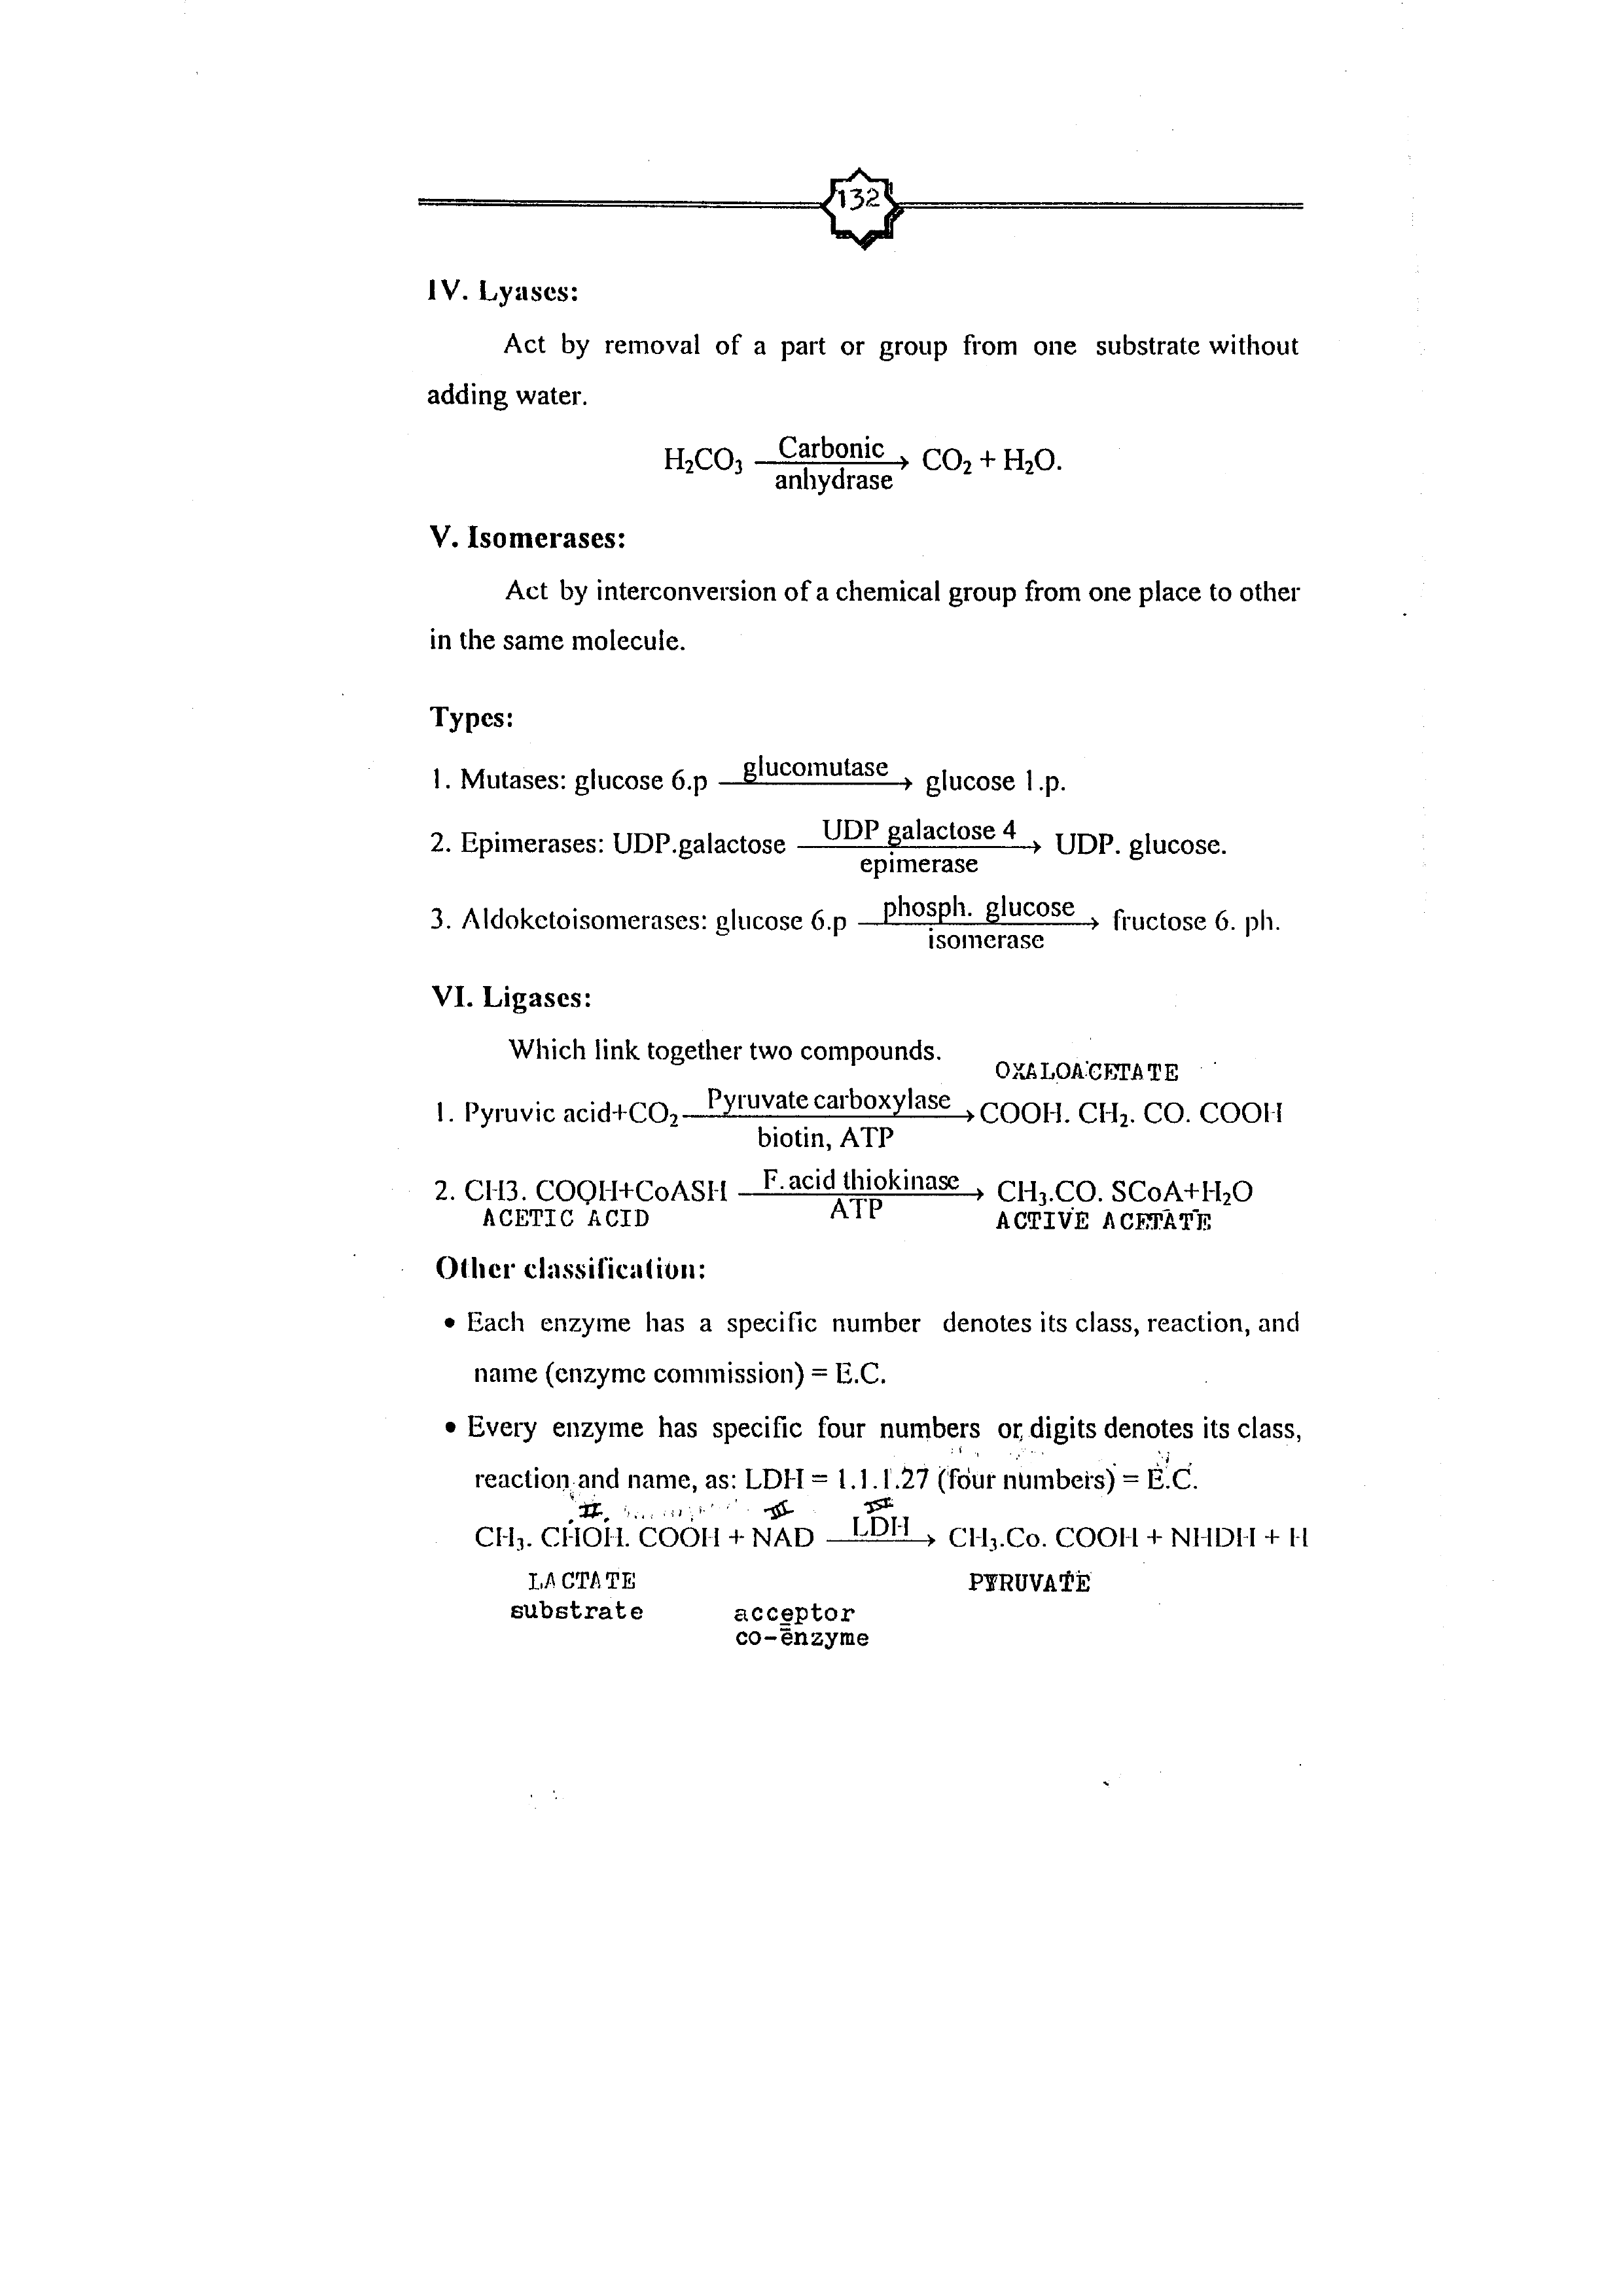 132
IV. Lyases:
Act by removal of a part or group from one substrate without
adding water.
H₂CO₃ —Carbonic anhydrase→ CO₂ + H₂O.
V. Isomerases:
Act by interconversion of a chemical group from one place to other
in the same molecule.
Types:
1. Mutases: glucose 6.p —glucomutase→ glucose 1.p.
2. Epimerases: UDP.galactose —UDP galactose 4 epimerase→ UDP. glucose.
3. Aldoketoisomerases: glucose 6.p —phosph. glucose isomerase→ fructose 6. ph.
VI. Ligases:
Which link together two compounds.
OXALOACETATE
1. Pyruvic acid+CO₂ —Pyruvate carboxylase biotin, ATP→ COOH. CH₂. CO. COOH
2. CH3. COOH+CoASH —F.acid thiokinase ATP→ CH₃.CO. SCoA+H₂O
ACETIC ACID ACTIVE ACETATE
Other classification:
• Each enzyme has a specific number denotes its class, reaction, and
name (enzyme commission) = E.C.
• Every enzyme has specific four numbers or digits denotes its class,
reaction and name, as: LDH = 1.1.1.27 (four numbers) = E.C.
II III IV
CH₃. CHOH. COOH + NAD —LDH→ CH₃.Co. COOH + NHDH + H
LACTATE PYRUVATE
substrate acceptor
co-enzyme